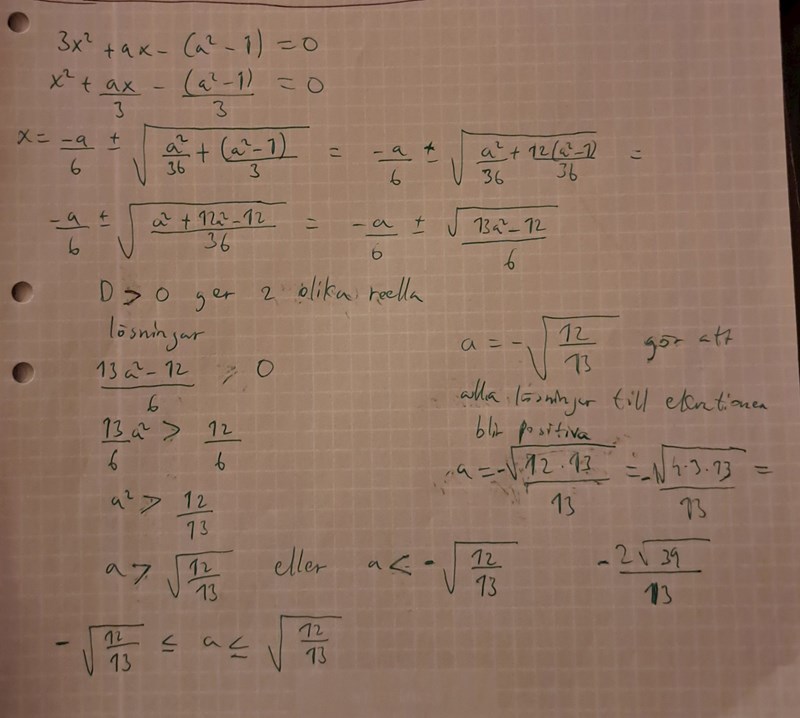 3x² + ax - (a² - 1) = 0
x² + ax/3 - (a² - 1)/3 = 0
x = -a/6 ± √(a²/36 + (a² - 1)/3) = -a/6 ± √(a²/36 + 12(a² - 1)/36) =
-a/6 ± √((a² + 12a² - 12)/36) = -a/6 ± √(13a² - 12)/6
D > 0 ger 2 olika reella
lösningar
(13a² - 12)/6 > 0
13a²/6 > 12/6
a² > 12/13
a > √(12/13) eller a < -√(12/13)
-√(12/13) ≤ a ≤ √(12/13)
a = -√(12/13) gör att
alla lösningar till ekvationen
blir positiva
a = -√(12·13)/13 = -√(4·3·13)/13 =
-2√39/13